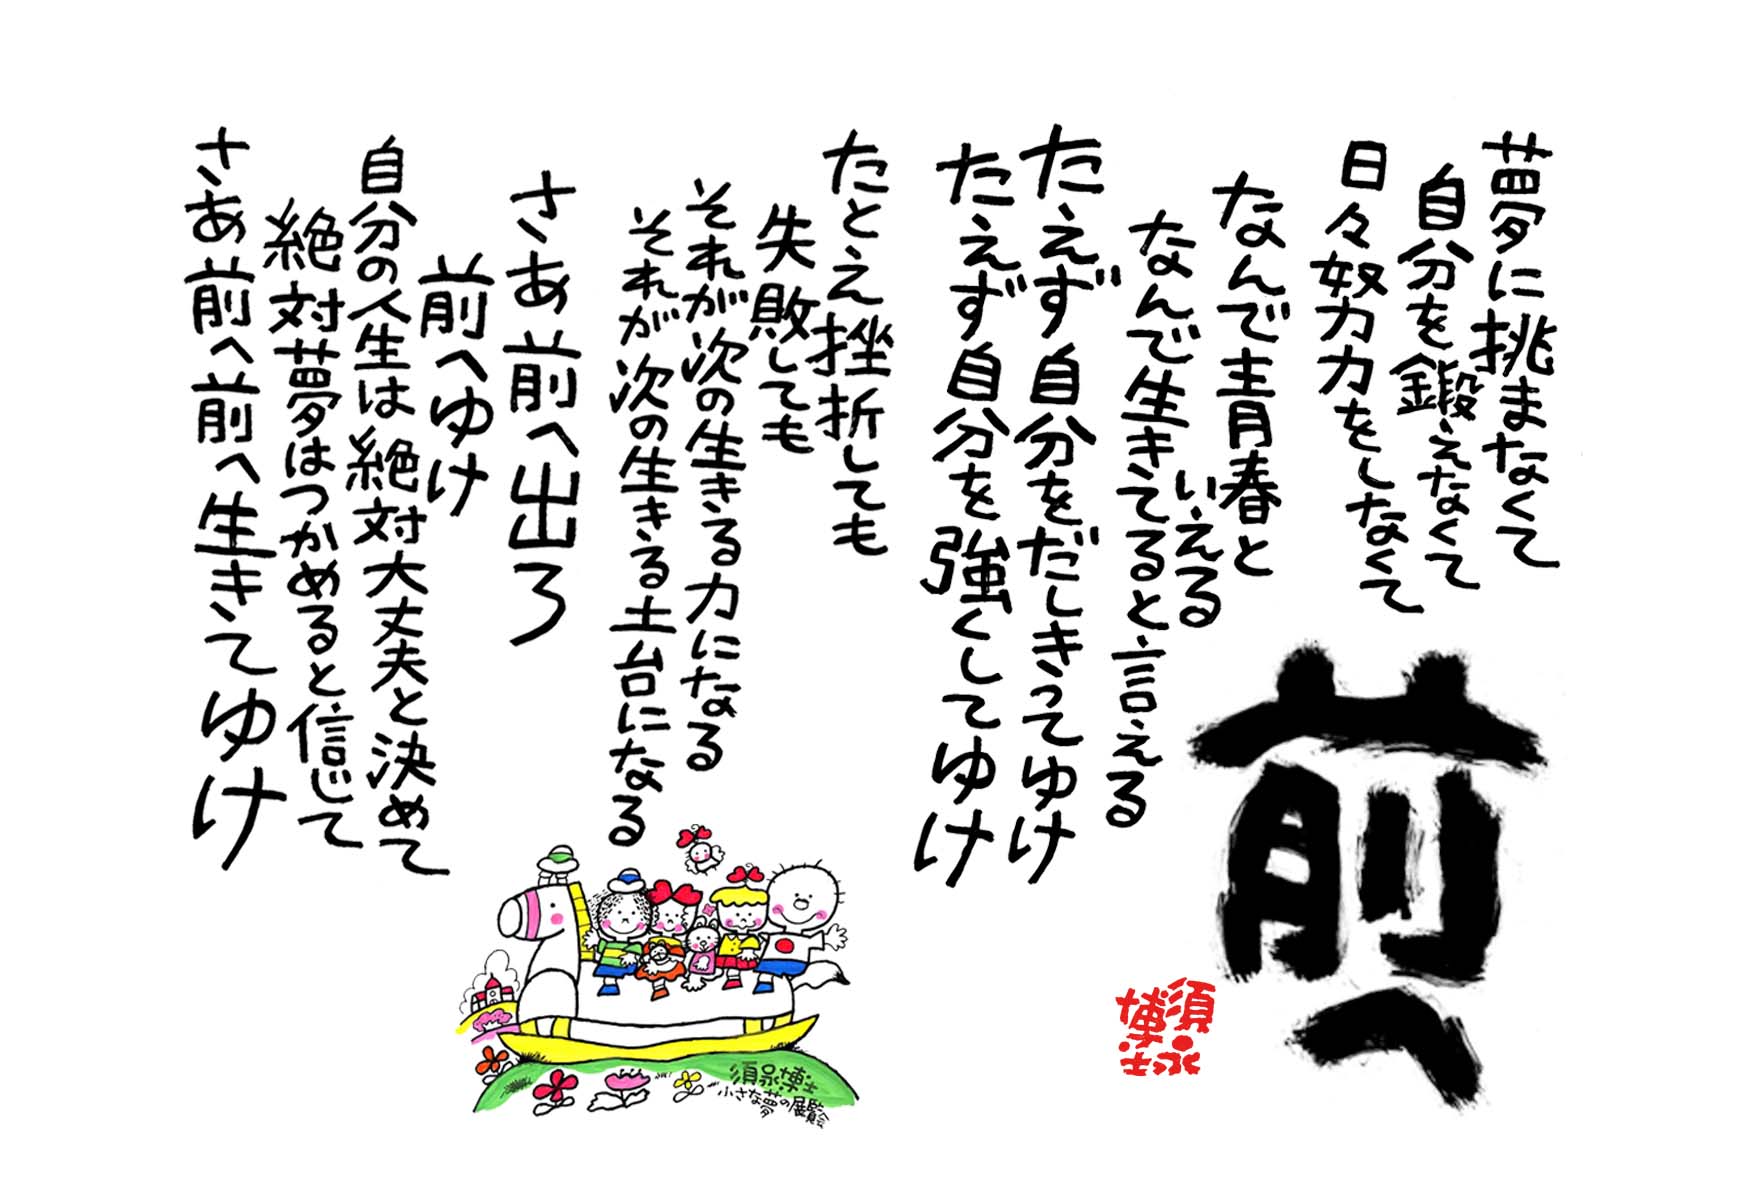 夢に挑まなくて
自分を鍛えなくて
日々努力をしなくて
なんで青春と
いえる
なんで生きてると言える
たえず自分をだしきってゆけ
たえず自分を強くしてゆけ
たとえ挫折しても
失敗しても
それが次の生きる力になる
それが次の生きる土台になる
さあ前へ出ろ
前へゆけ
自分の人生は絶対大丈夫と決めて
絶対夢はつかめると信じて
さあ前へ前へ生きてゆけ
前へ
須永
博士
須永博士
小さな夢の展覧会